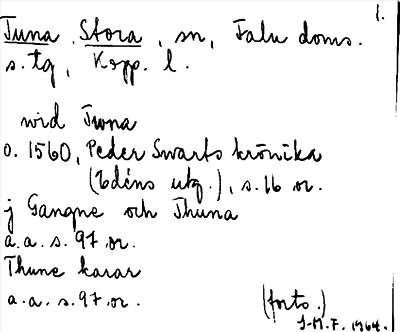 1.
Tuna, Stora, sn, Falu doms.
s. tg, Kopp. l.
wid Twna
o. 1560, Peder Swarts krönika
(Edéns utg.), s. 16 or.
j Gangne och Thuna
a.a. s. 97 or.
Thune karar
a.a. s. 97 or.
(forts.)
J-M.F. 1964.